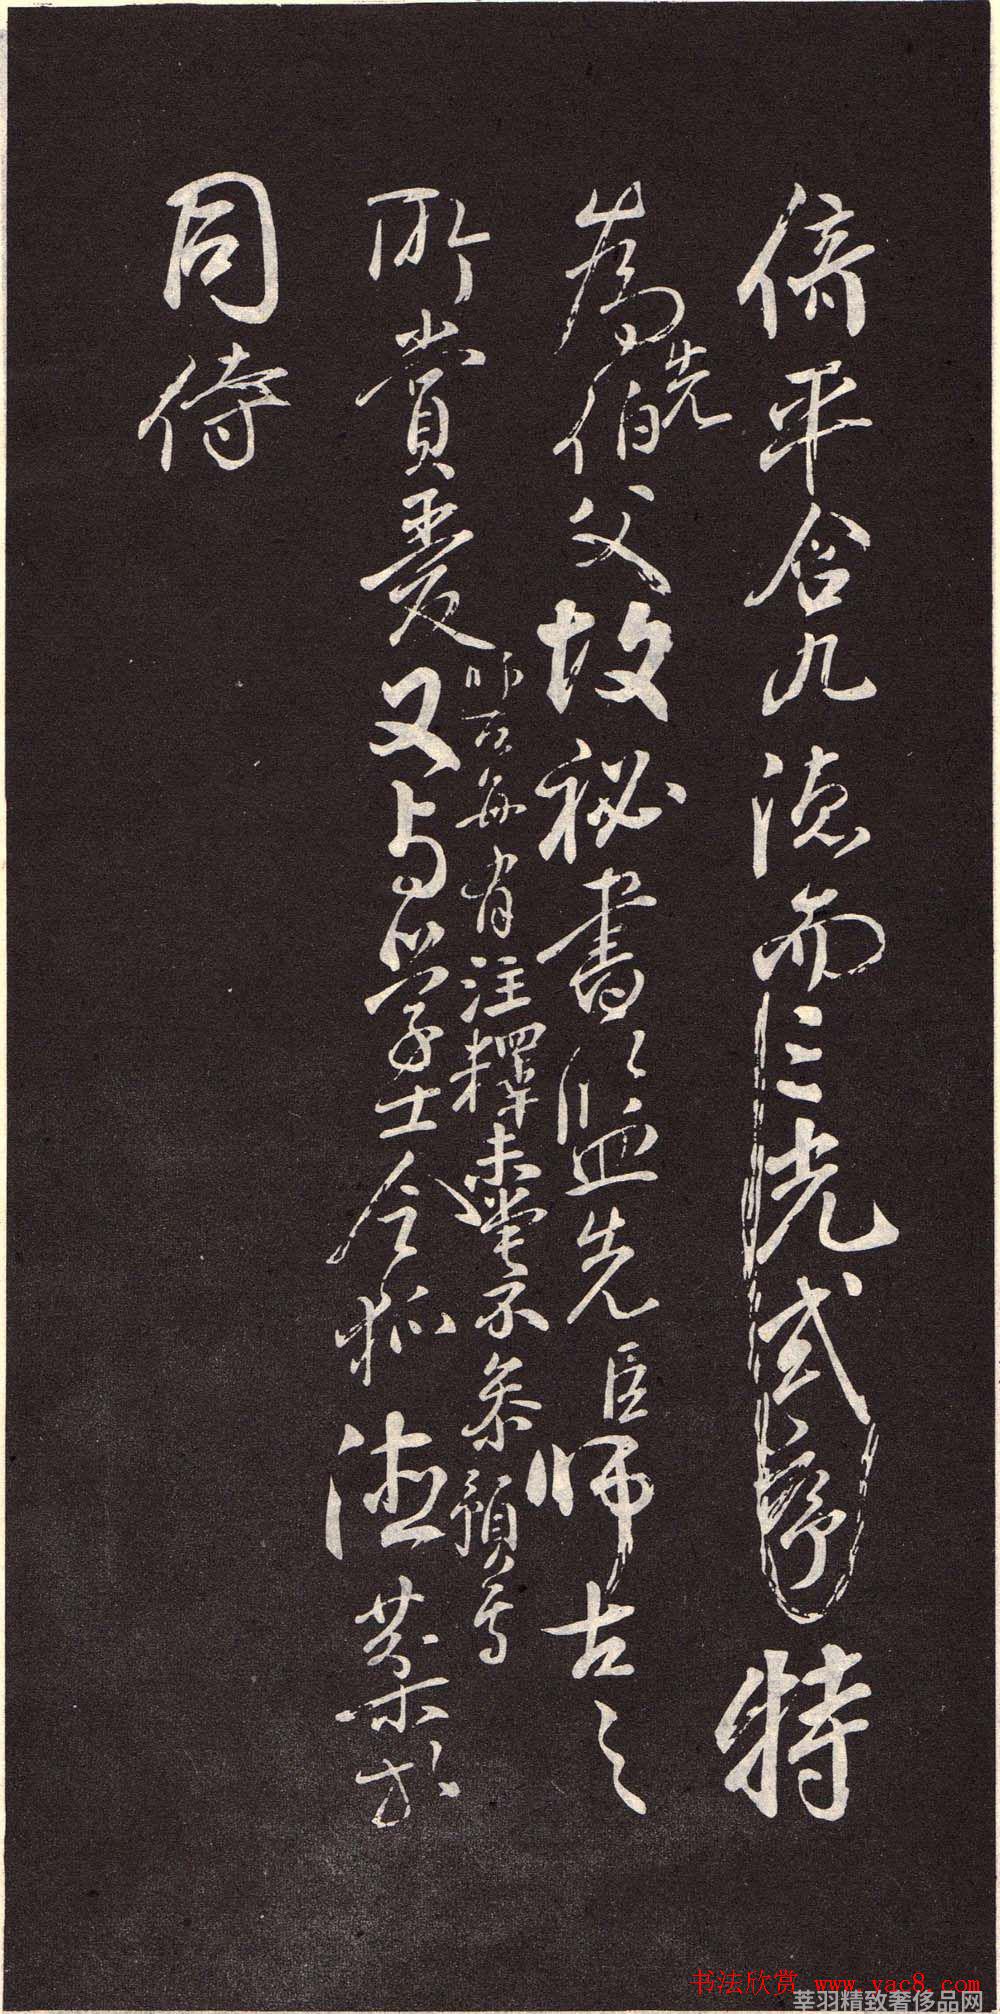 平含九德而三光式序特
為先伯父故祕書監先臣師古之
師古每有注釋未嘗不參預焉
所賞愛又与學士令狐德棻於
同侍
书法欣赏 www.yac8.com
莘羽精致奢侈品网